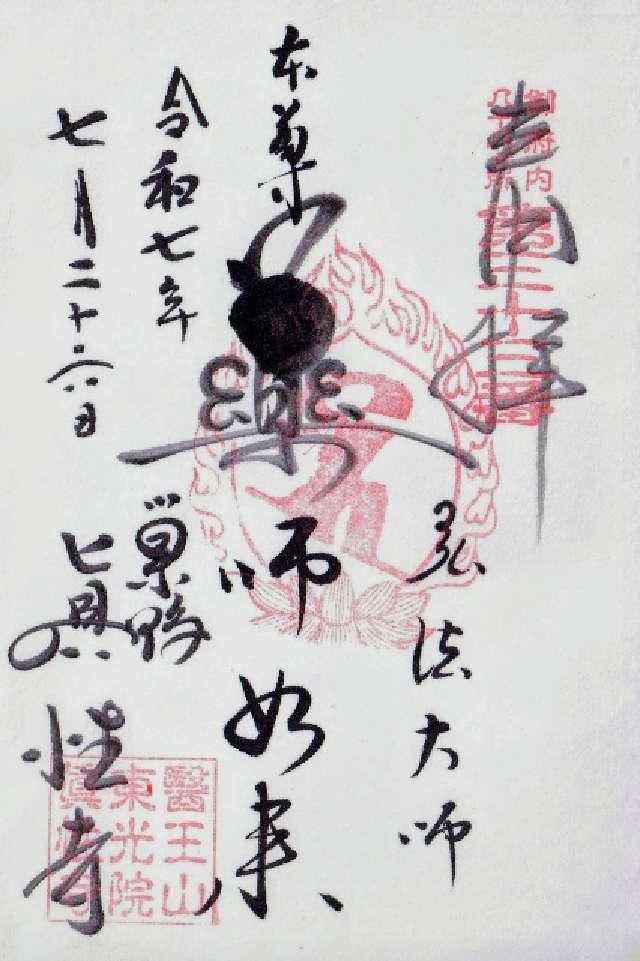 御府内
八十八ヶ所
第三十三番
拝
弘法大師
本尊
藥師如来
令和七年
七月二十六日
巣鴨
眞性寺
醫王山
東光院
眞性寺